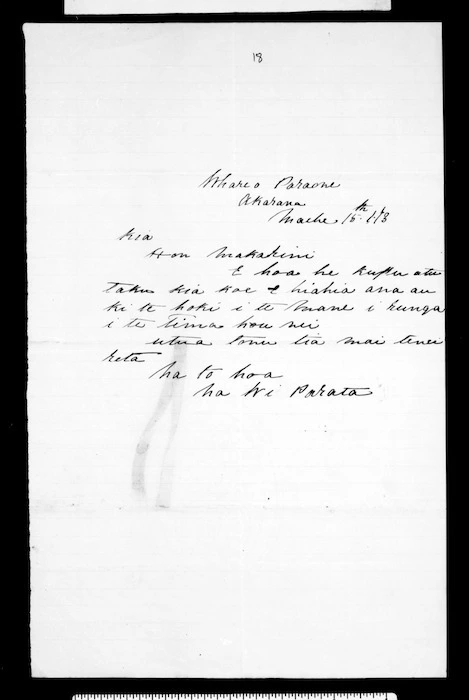 18
Whare o Paraone
Akarana
Maehe 15th /73
Kia
Hon Makarini
E hoa he kupu atu
taku kia koe e hiahia ana au
ki te hoki i te Mane i runga
i te Tima hou nei
utua tonu tia mai tenei
reta
Na to hoa
Na Wi Parata